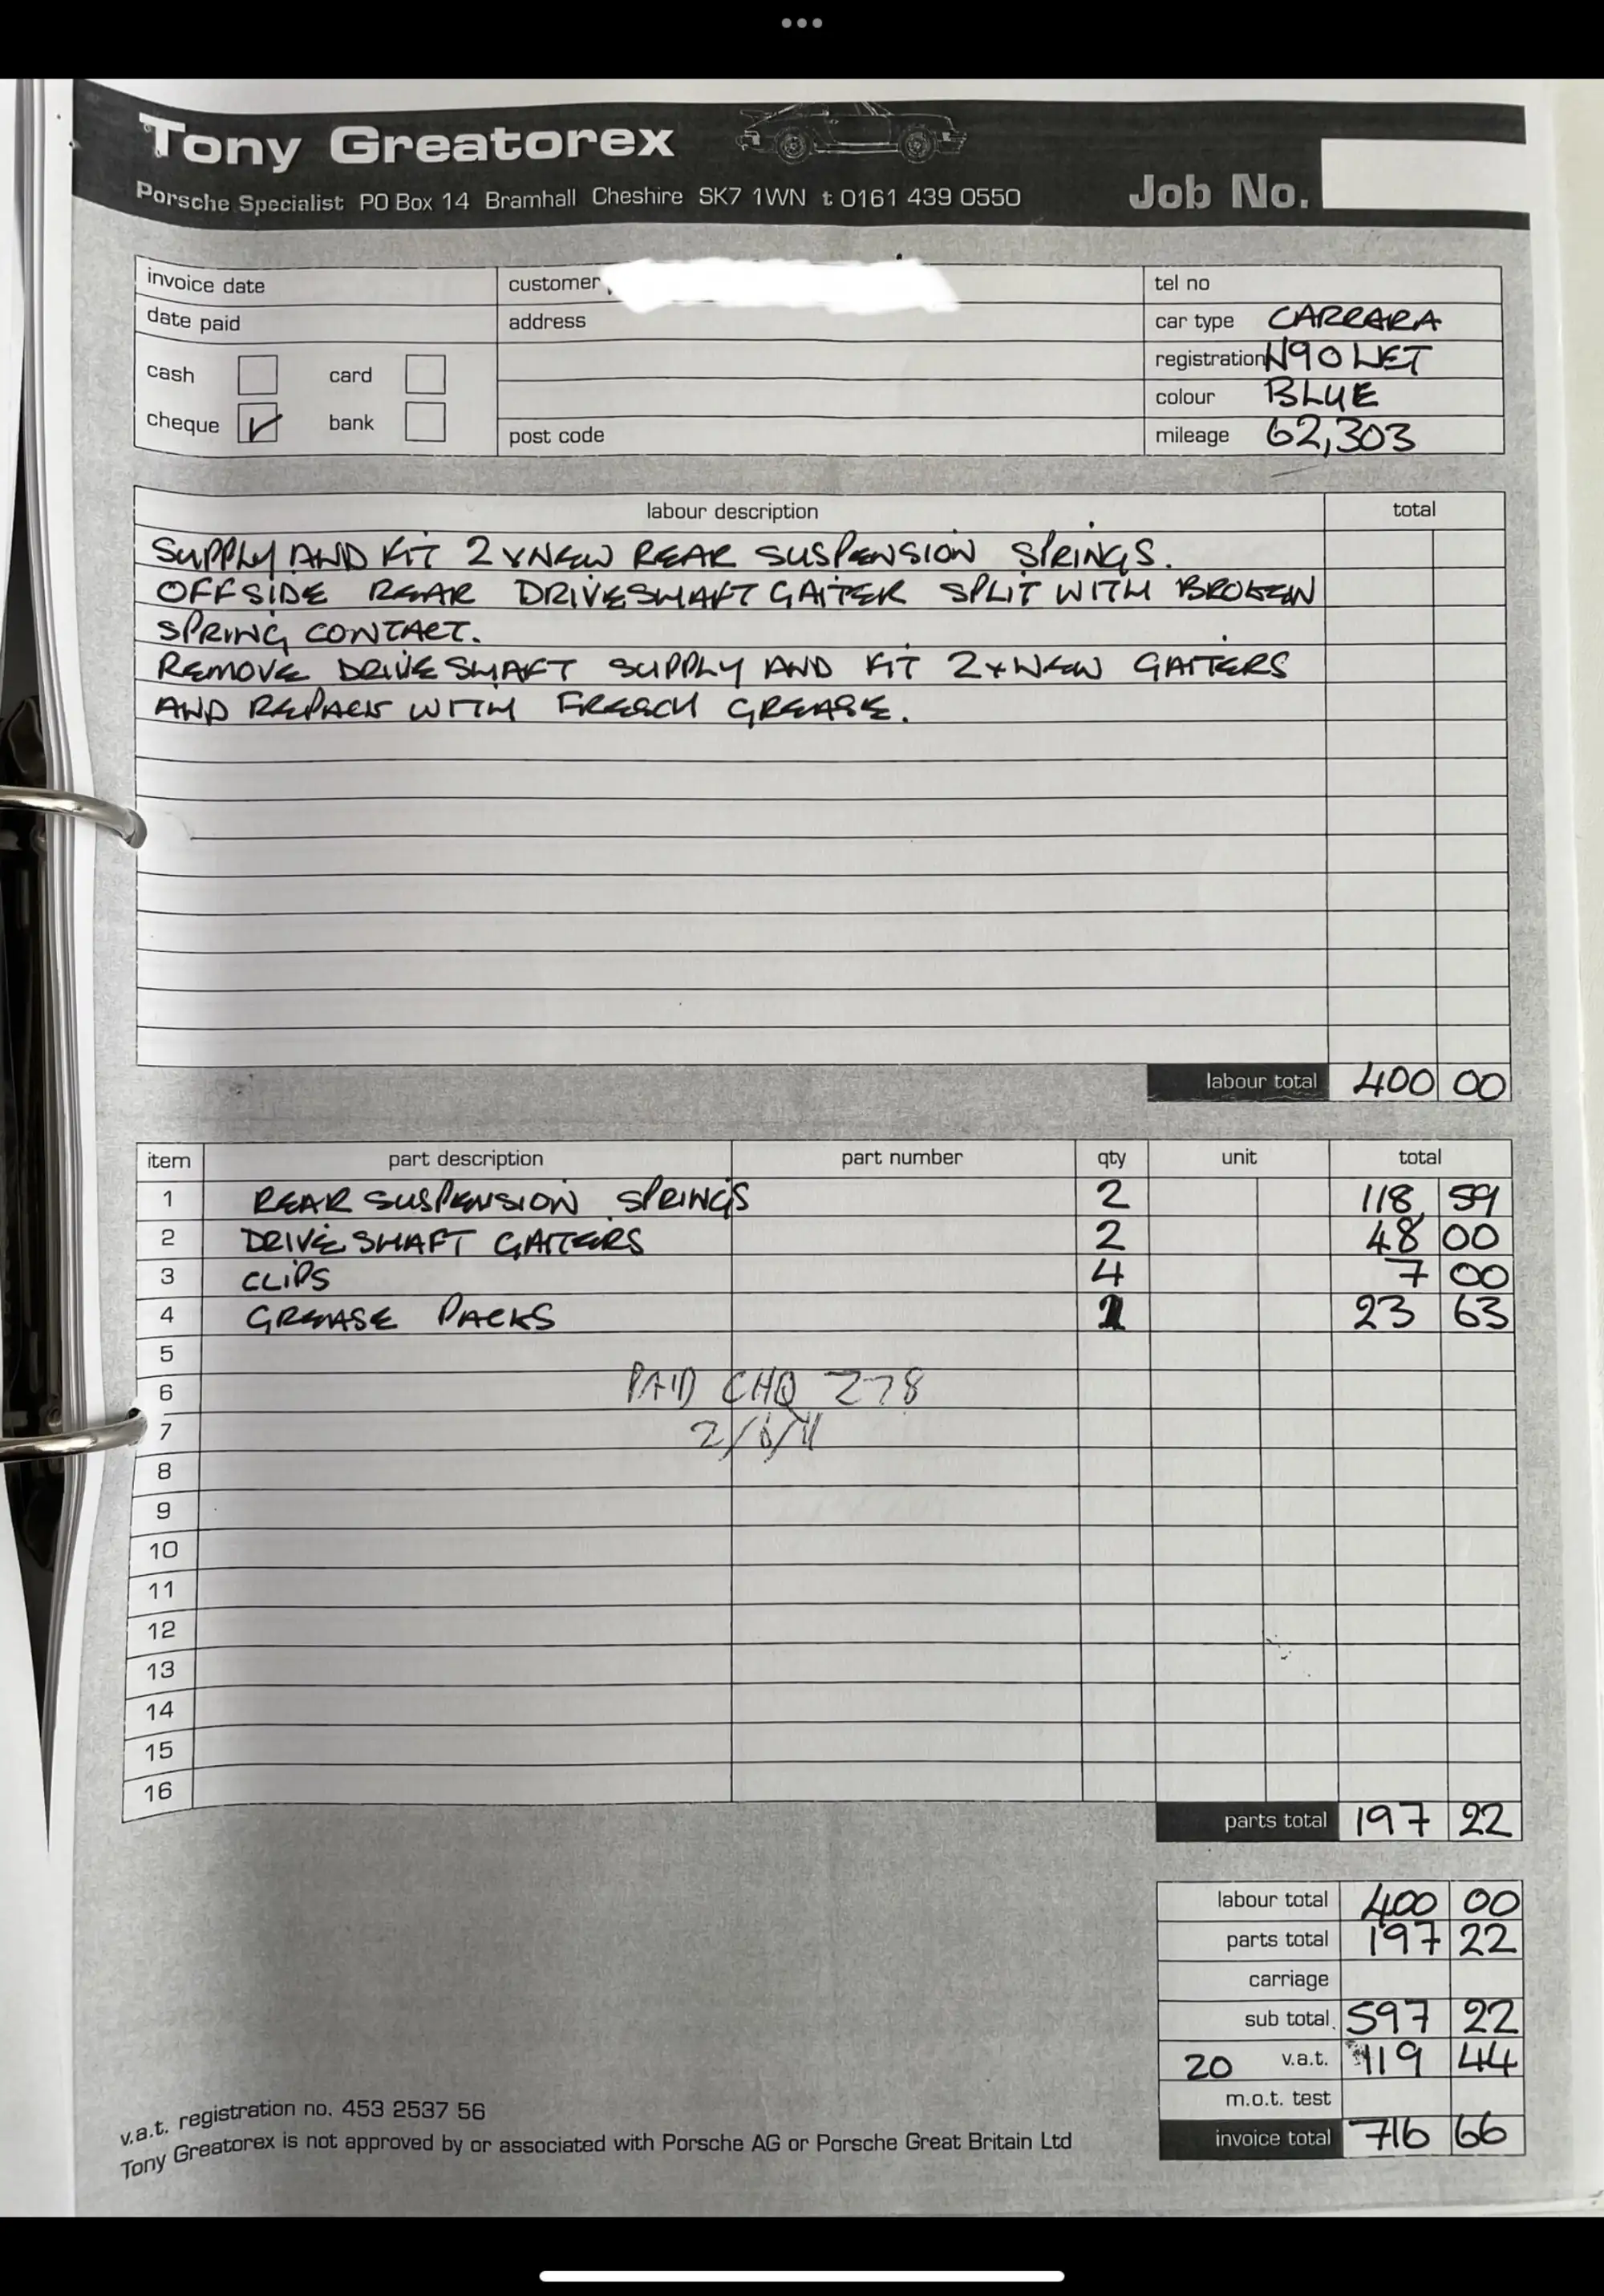 Tony Greatorex
Porsche Specialist PO Box 14 Bramhall Cheshire SK7 1WN t 0161 439 0550
Job No.
invoice date
date paid
cash card
cheque bank
customer
address
post code
tel no
car type CARRARA
registration N90 WET
colour BLUE
mileage 62,303
labour description total
SUPPLY AND FIT 2 x NEW REAR SUSPENSION SPRINGS.
OFFSIDE REAR DRIVESHAFT GAITER SPLIT WITH BROKEN
SPRING CONTACT.
REMOVE DRIVESHAFT SUPPLY AND FIT 2 x NEW GAITERS
AND REPACK WITH FRESCH GREASE.
labour total 400 00
item part description part number qty unit total
1 REAR SUSPENSION SPRINGS 2 118 59
2 DRIVESHAFT GAITERS 2 48 00
3 CLIPS 4 7 00
4 GREASE PACKS 23 63
5
6 PAID CHQ 278
7 2/6/11
8
9
10
11
12
13
14
15
16
parts total 197 22
labour total 400 00
parts total 197 22
carriage
sub total 597 22
20 v.a.t. 119 44
m.o.t. test
invoice total 716 66
v.a.t. registration no. 453 2537 56
Tony Greatorex is not approved by or associated with Porsche AG or Porsche Great Britain Ltd